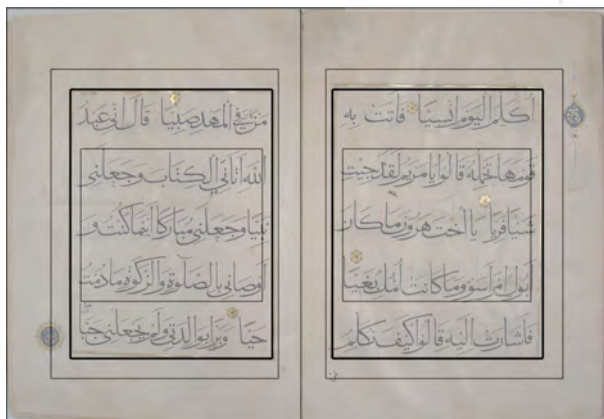 أكلم اليوم انسيا فاتت به
قومها تحمله قالوا يا مريم لقد جيت
شيئا فريا يا اخت هرون ما كان
ابوك امرا سوء وما كانت امك بغيا
فاشارت اليه قالوا كيف نكلم
من كان في المهد صبيا قال انى عبد
الله اتانى الكتاب وجعلنى
نبيا وجعلنى مباركا اينما كنت و
اوصانى بالصلوة والزكوة ما دمت
حيا وبرا بوالدتى ولم يجعلنى جبا